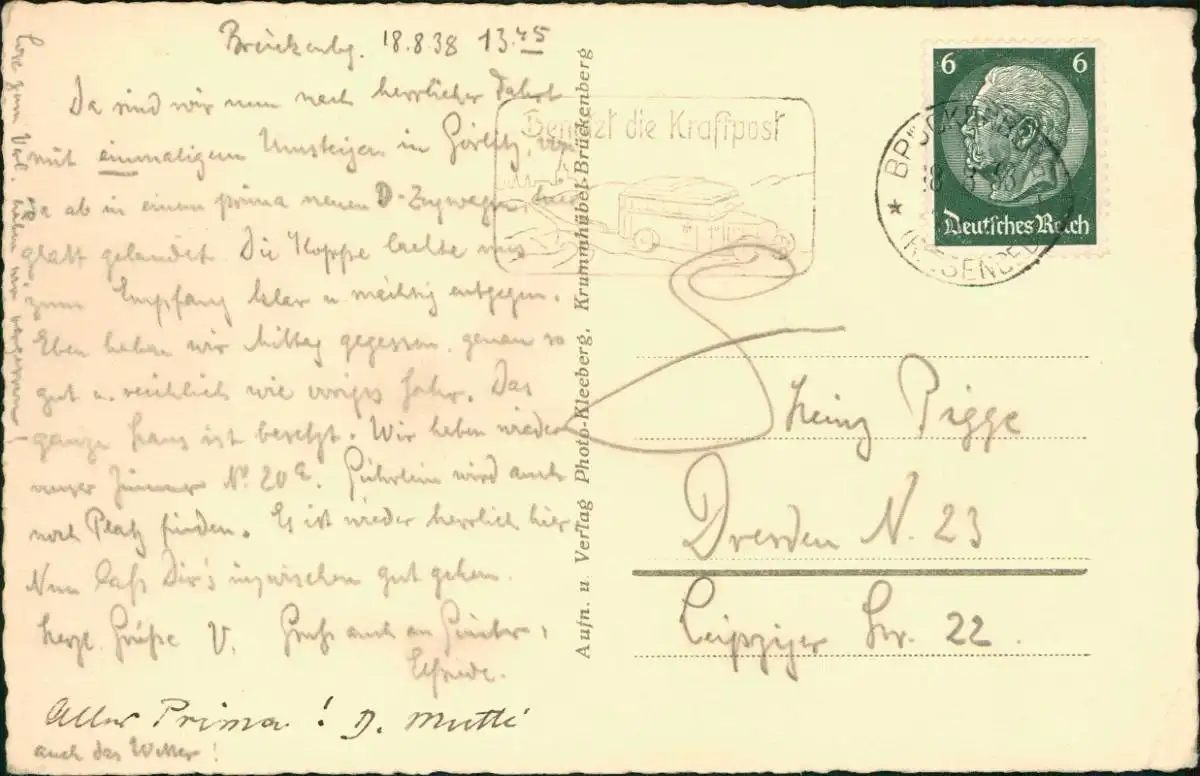 Brückenbg. 18.8.38 13.45
Da sind wir nun nach herrlicher Fahrt
mit einmaligem Umsteigen in Görlitz, von
da ab in einem prima neuen D-Zugwagen, hier
glatt gelandet. Die Koppe lachte uns
zum Empfang klar u. mächtig entgegen.
Eben haben wir Mittag gegessen, genau so
gut u. reichlich wie voriges Jahr. Das
ganze Haus ist besetzt. Wir haben wieder
unser Zimmer No. 20a. wird auch
noch Platz finden. Es ist wieder herrlich hier.
Nun laß Dir's inzwischen gut gehen.
Herzl. Grüße V. Gruß auch an Günter,
Elfriede.
Alles Prima! D. Mutti
auch das Wetter!
haben wir vergessen
Aufn. u Verlag Photo-Kleeberg, Krummhübel-Brückenberg
Benutzt die Kraftpost
6 6
Deutsches Reich
BRÜCKENBERG
18.8.38
(RIESENGEB)
Heinz Pigge
Dresden N. 23
Leipziger Str. 22.